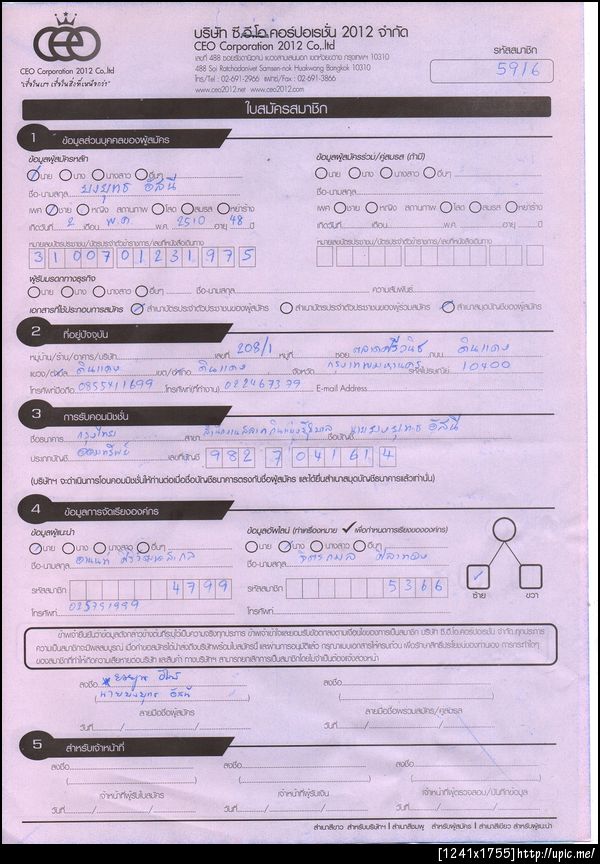 CEO
CEO Corporation 2012 Co.,ltd
บริษัท ซี.อี.โอ.คอร์ปอเรชั่น 2012 จำกัด
CEO Corporation 2012 Co.,ltd
488 Soi Ratchadanivet Samsen-nok Huakwang Bangkok 10310
โทร/Tel : 02-691-2966 แฟกซ์/Fax : 02-691-3866
www.ceo2012.net www.ceo2012.com
รหัสสมาชิก
5916
ใบสมัครสมาชิก
1 ข้อมูลส่วนบุคคลของผู้สมัคร
ข้อมูลผู้สมัครหลัก ข้อมูลผู้สมัครร่วม/คู่สมรส (ถ้ามี)
นาย นาง นางสาว อื่นๆ นาย นาง นางสาว อื่นๆ
ชื่อ-นามสกุล ยงยุทธ อัสนี ชื่อ-นามสกุล
เพศ ชาย หญิง สถานภาพ โสด สมรส หย่าร้าง เพศ ชาย หญิง สถานภาพ โสด สมรส หย่าร้าง
เกิดวันที่ 2 เดือน พ.ค. พ.ศ. 2510 อายุ 48 ปี เกิดวันที่ เดือน พ.ศ. อายุ ปี
หมายเลขบัตรประชาชน/บัตรประจำตัวข้าราชการ/เลขที่หนังสือเดินทาง หมายเลขบัตรประชาชน/บัตรประจำตัวข้าราชการ/เลขที่หนังสือเดินทาง
3100701231975
ผู้รับมรดกทางธุรกิจ
นาย นาง นางสาว อื่นๆ ชื่อ-นามสกุล ความสัมพันธ์
เอกสารที่ใช้ประกอบการสมัคร สำเนาบัตรประจำตัวประชาชนของผู้สมัคร สำเนาบัตรประจำตัวประชาชนของผู้สมัครร่วม สำเนาสมุดบัญชีของผู้สมัคร
2 ที่อยู่ปัจจุบัน
หมู่บ้าน/ร้าน/อาคาร/บริษัท เลขที่ 208/1 หมู่ที่ ซอย ตลาดศรีวนิช ถนน ดินแดง
แขวง/ตำบล ดินแดง เขต/อำเภอ ดินแดง จังหวัด กรุงเทพมหานคร รหัสไปรษณีย์ 10400
โทรศัพท์มือถือ 0855411699 โทรศัพท์(ที่ทำงาน) 022467379 E-mail Address
3 การรับคอมมิชชั่น
ชื่อธนาคาร กรุงไทย สาขา ชื่อบัญชี นายยงยุทธ อัสนี
ประเภทบัญชี ออมทรัพย์ เลขที่บัญชี 9827041614
(บริษัทฯ จะดำเนินการโอนคอมมิชชั่นให้ท่านต่อเมื่อชื่อบัญชีธนาคารตรงกับชื่อผู้สมัคร และได้ยื่นสำเนาสมุดบัญชีธนาคารแล้วเท่านั้น)
4 ข้อมูลการจัดเรียงองค์กร
ข้อมูลผู้แนะนำ ข้อมูลอัพไลน์ (ทำเครื่องหมาย ✓ เพื่อกำหนดการเรียงขององค์กร)
นาย นาง นางสาว อื่นๆ นาย นาง นางสาว อื่นๆ
ชื่อ-นามสกุล ชื่อ-นามสกุล
รหัสสมาชิก 4799 รหัสสมาชิก 5366 ซ้าย ขวา
โทรศัพท์ โทรศัพท์
ลงชื่อ ลงชื่อ
(นายยงยุทธ อัสนี)
ลายมือชื่อผู้สมัคร ลายมือชื่อผู้สมัครร่วม/คู่สมรส
วันที่ / / วันที่ / /
5 สำหรับเจ้าหน้าที่
ลงชื่อ ลงชื่อ ลงชื่อ
เจ้าหน้าที่ผู้รับใบสมัคร เจ้าหน้าที่ผู้รับเงิน เจ้าหน้าที่ผู้ตรวจสอบ/บันทึกข้อมูล
วันที่ / / วันที่ / / วันที่ / /
สำเนาสีขาว สำหรับบริษัทฯ | สำเนาสีชมพู สำหรับผู้สมัคร | สำเนาสีเขียว สำหรับผู้แนะนำ
[1241x1755]http://upic.me/